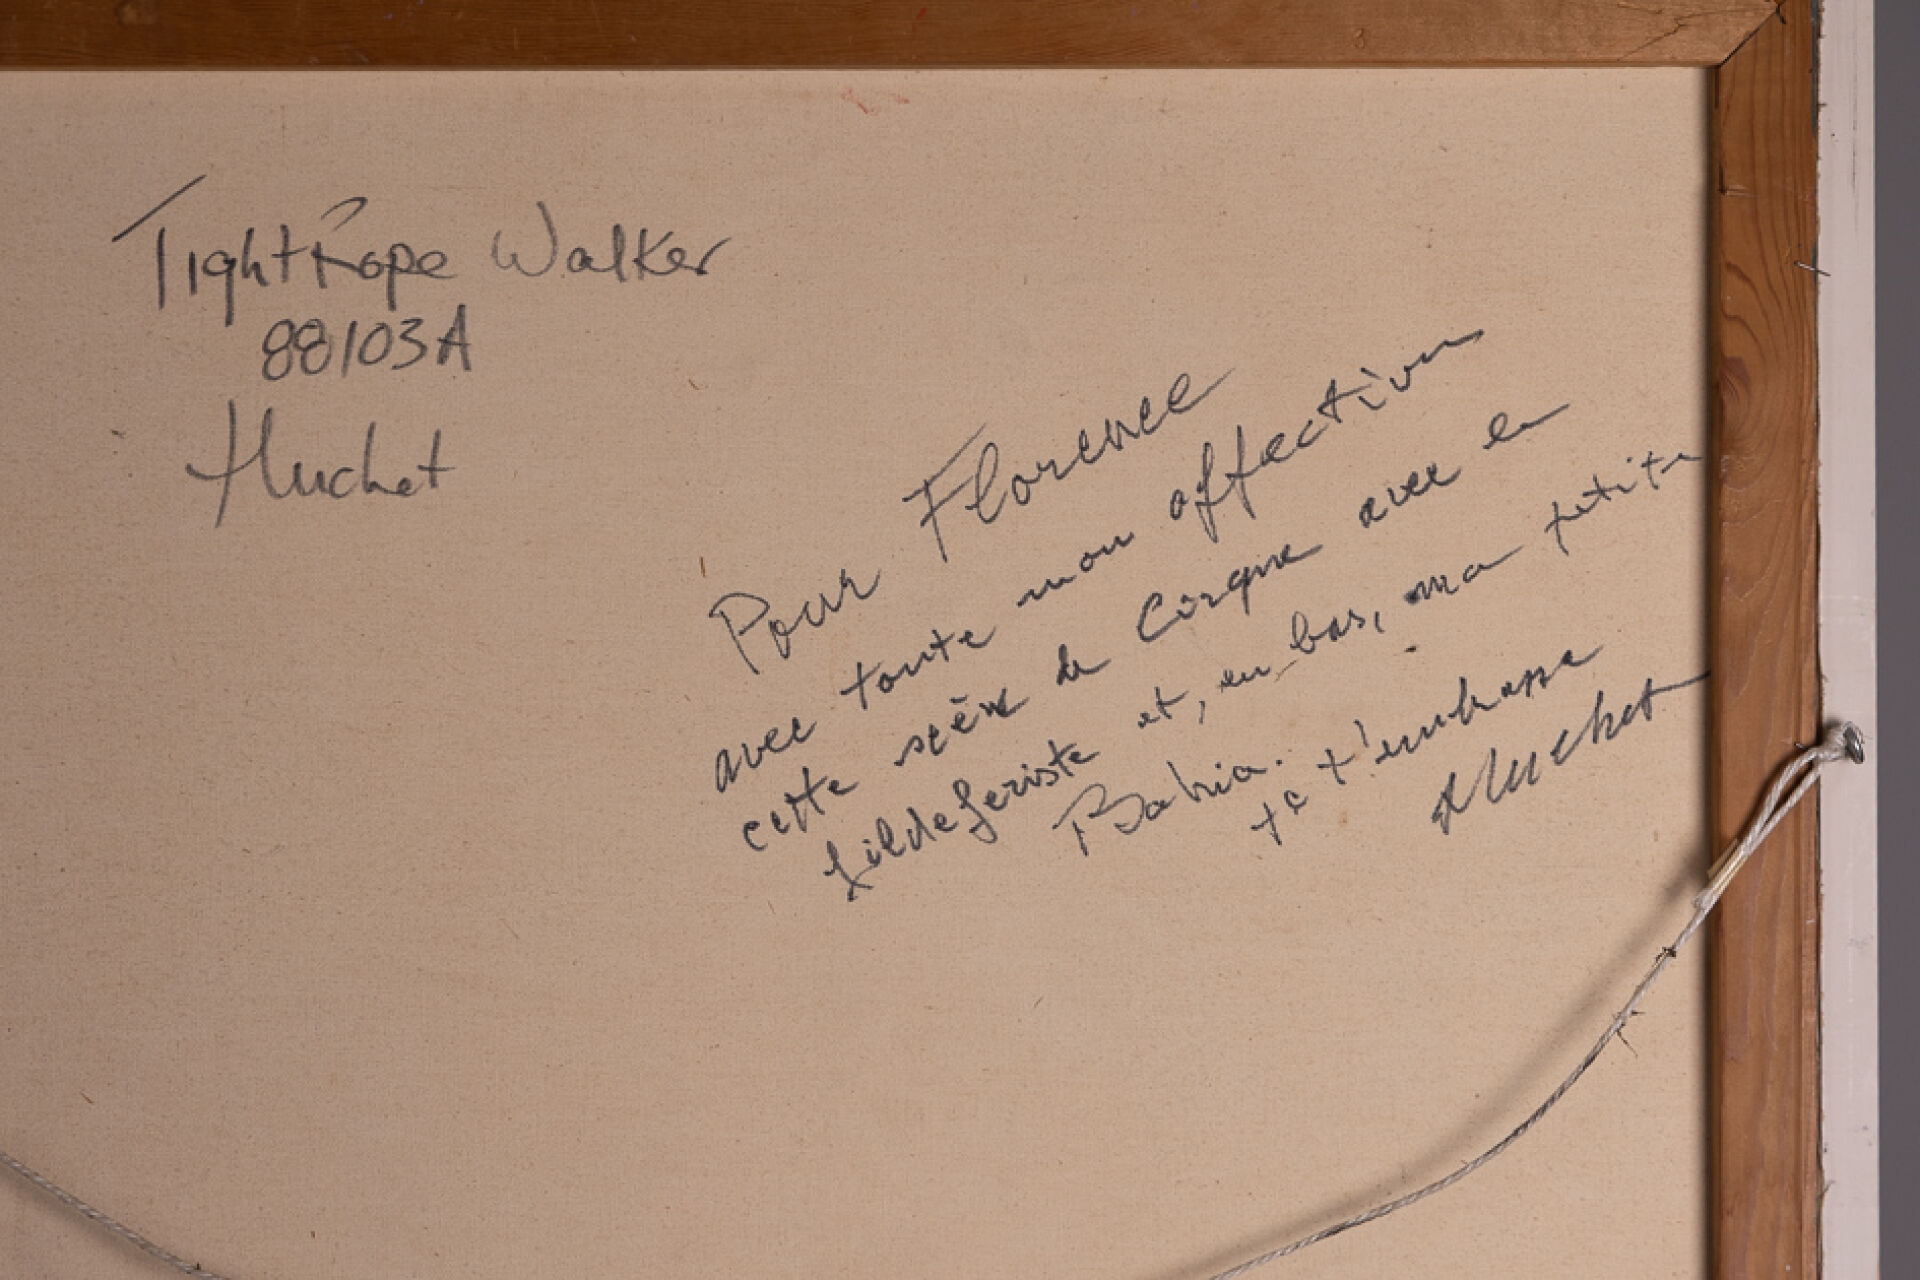 TightRope Walker
88103A
Huchet
Pour Florence
avec toute mon affection
cette scène de Cirque avec le
fildefériste et, en bas, ma petite
Bahia.
Je t'embrasse
Huchet